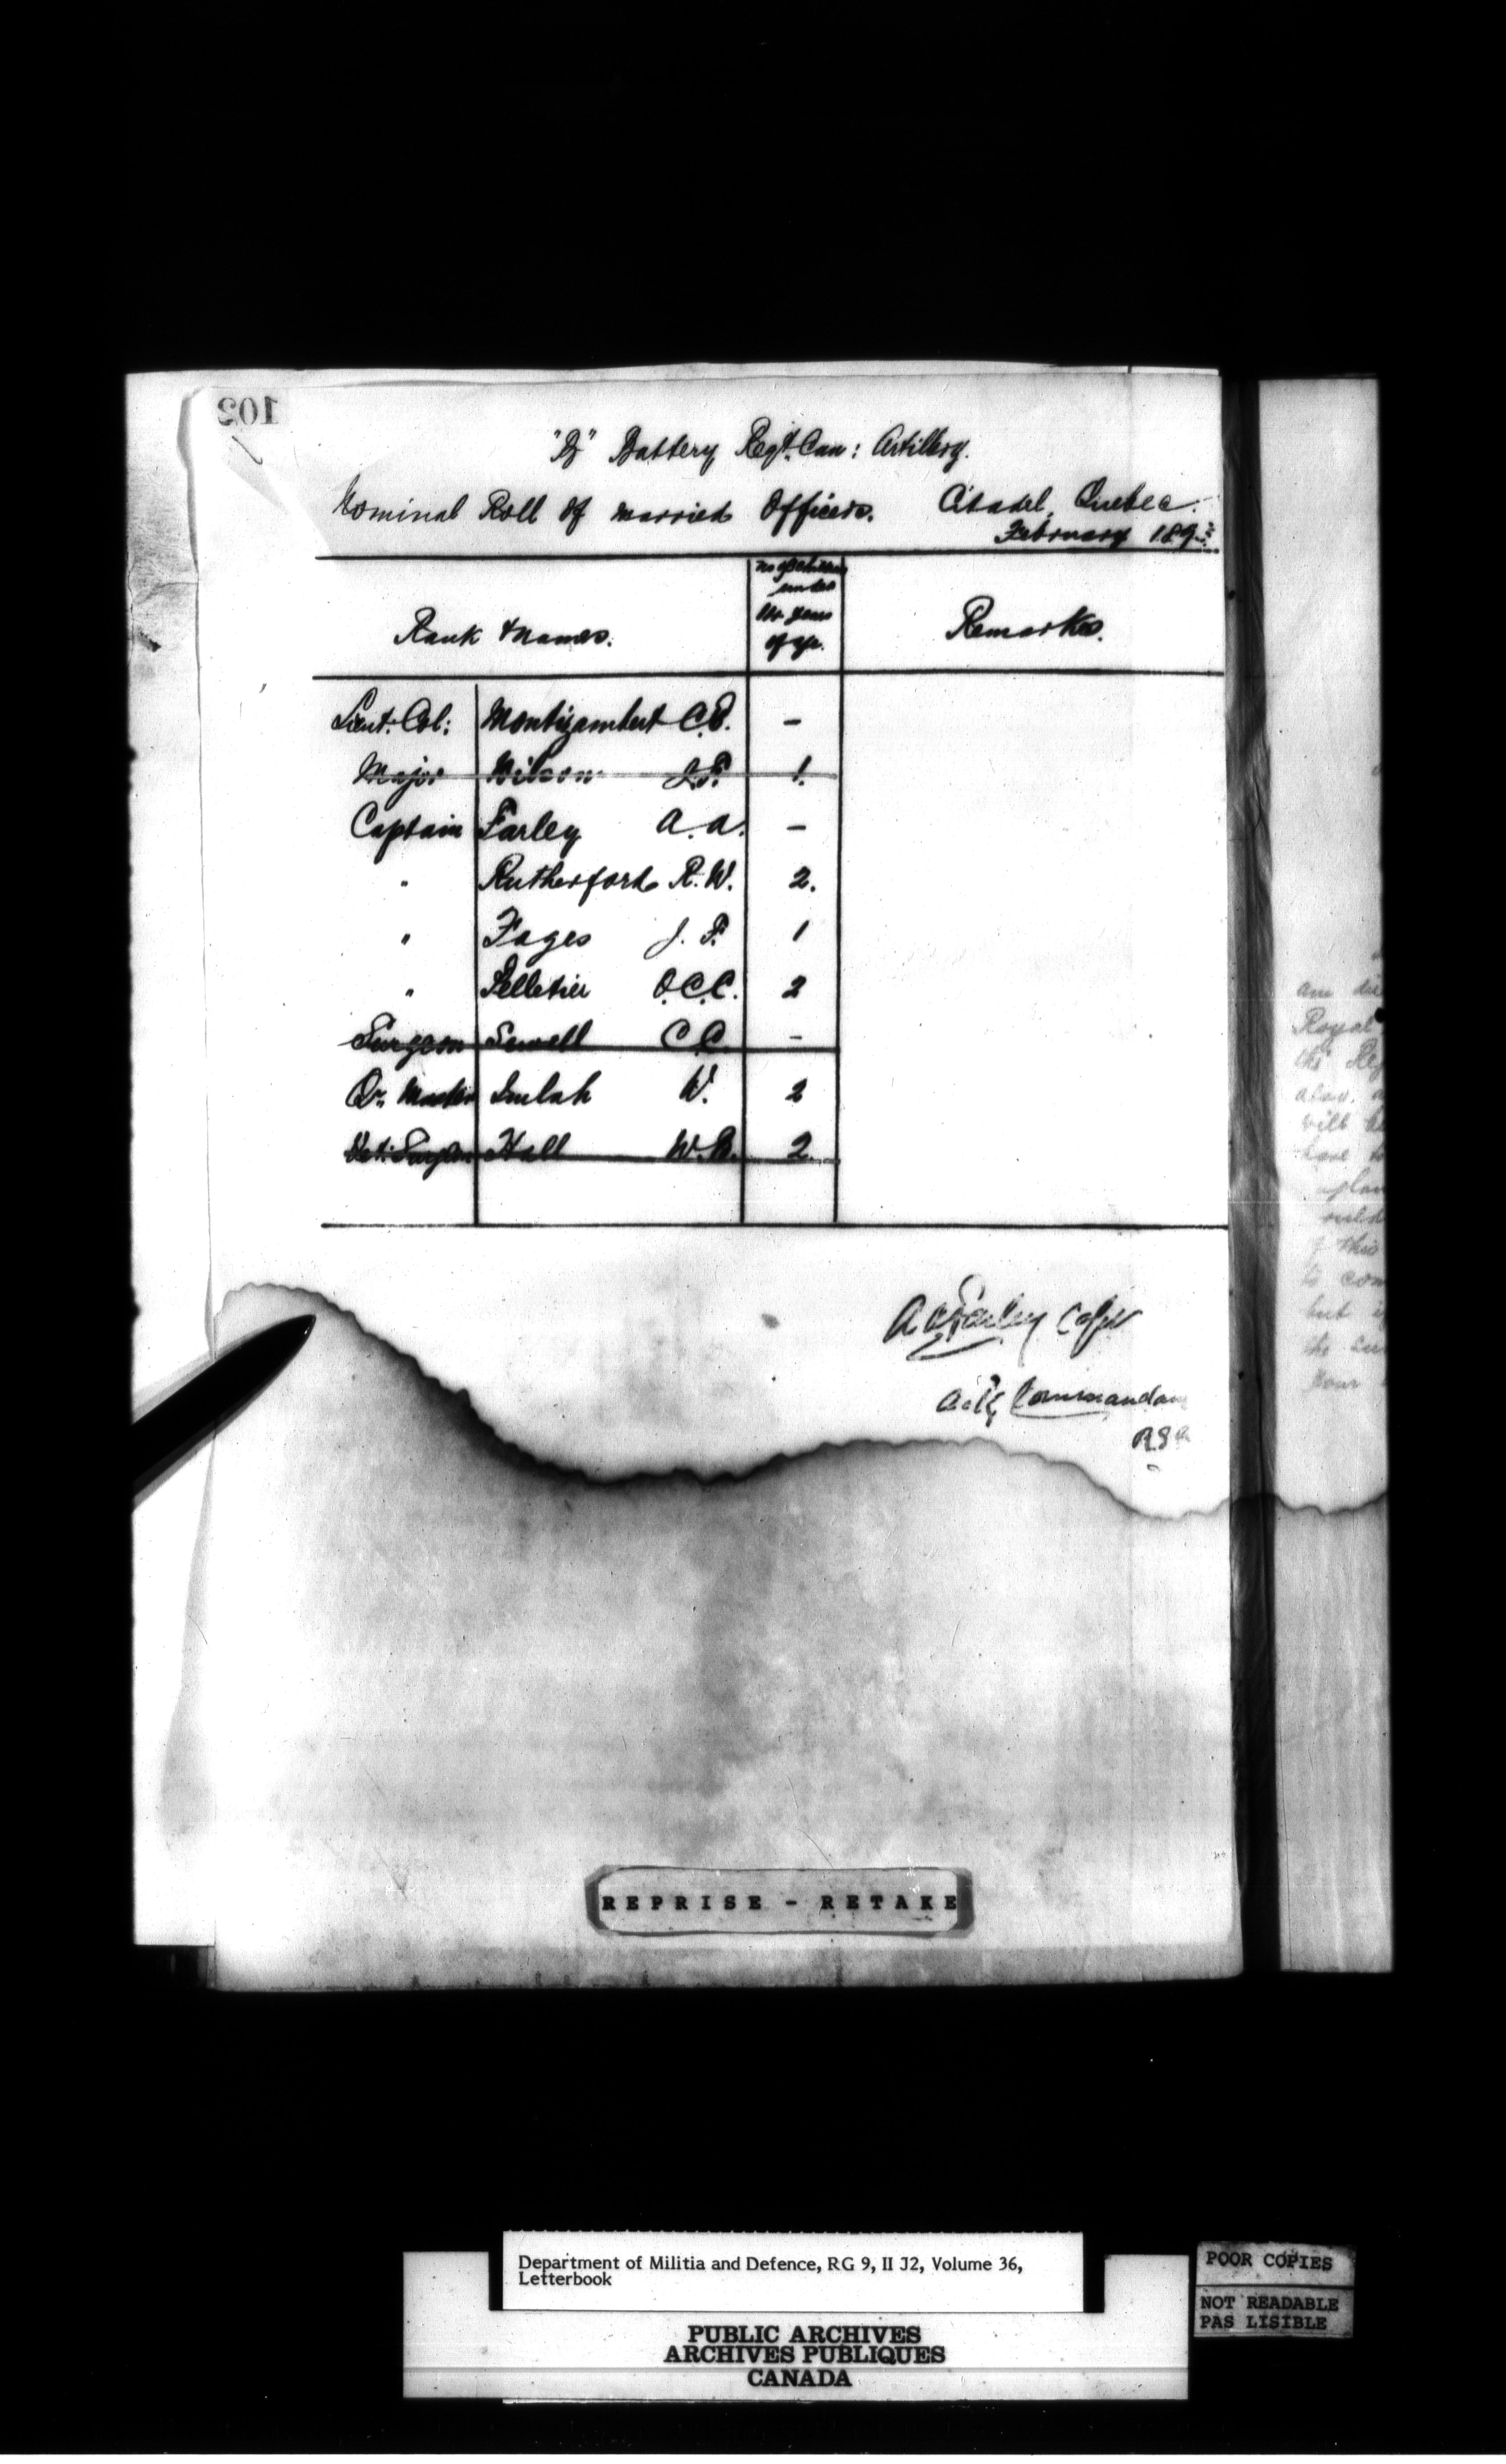 102
"B" Battery Regt. Can: Artillery.
Nominal Roll of Married Officers. Citadel, Quebec.
February 189
No of Children
under
years
of age.
Rank & Names. Remarks.
Lieut. Col: Montizambert C.E. –
Major Wilson J.F. 1.
Captain Farley A.A. –
" Rutherford R.W. 2.
" Fages J.F. 1
" Pelletier O.C.C. 2
Surgeon Sewell C.C. –
Qr. Master Imlah W. 2
Vet: Surgeon Hall W.B. 2.
A A Farley Capt
Actg Commandant
am
Royal
the
also,
have
this
to com
but
the
your
REPRISE - RETAKE
Department of Militia and Defence, RG 9, II J2, Volume 36,
Letterbook
PUBLIC ARCHIVES
ARCHIVES PUBLIQUES
CANADA
POOR COPIES
NOT READABLE
PAS LISIBLE